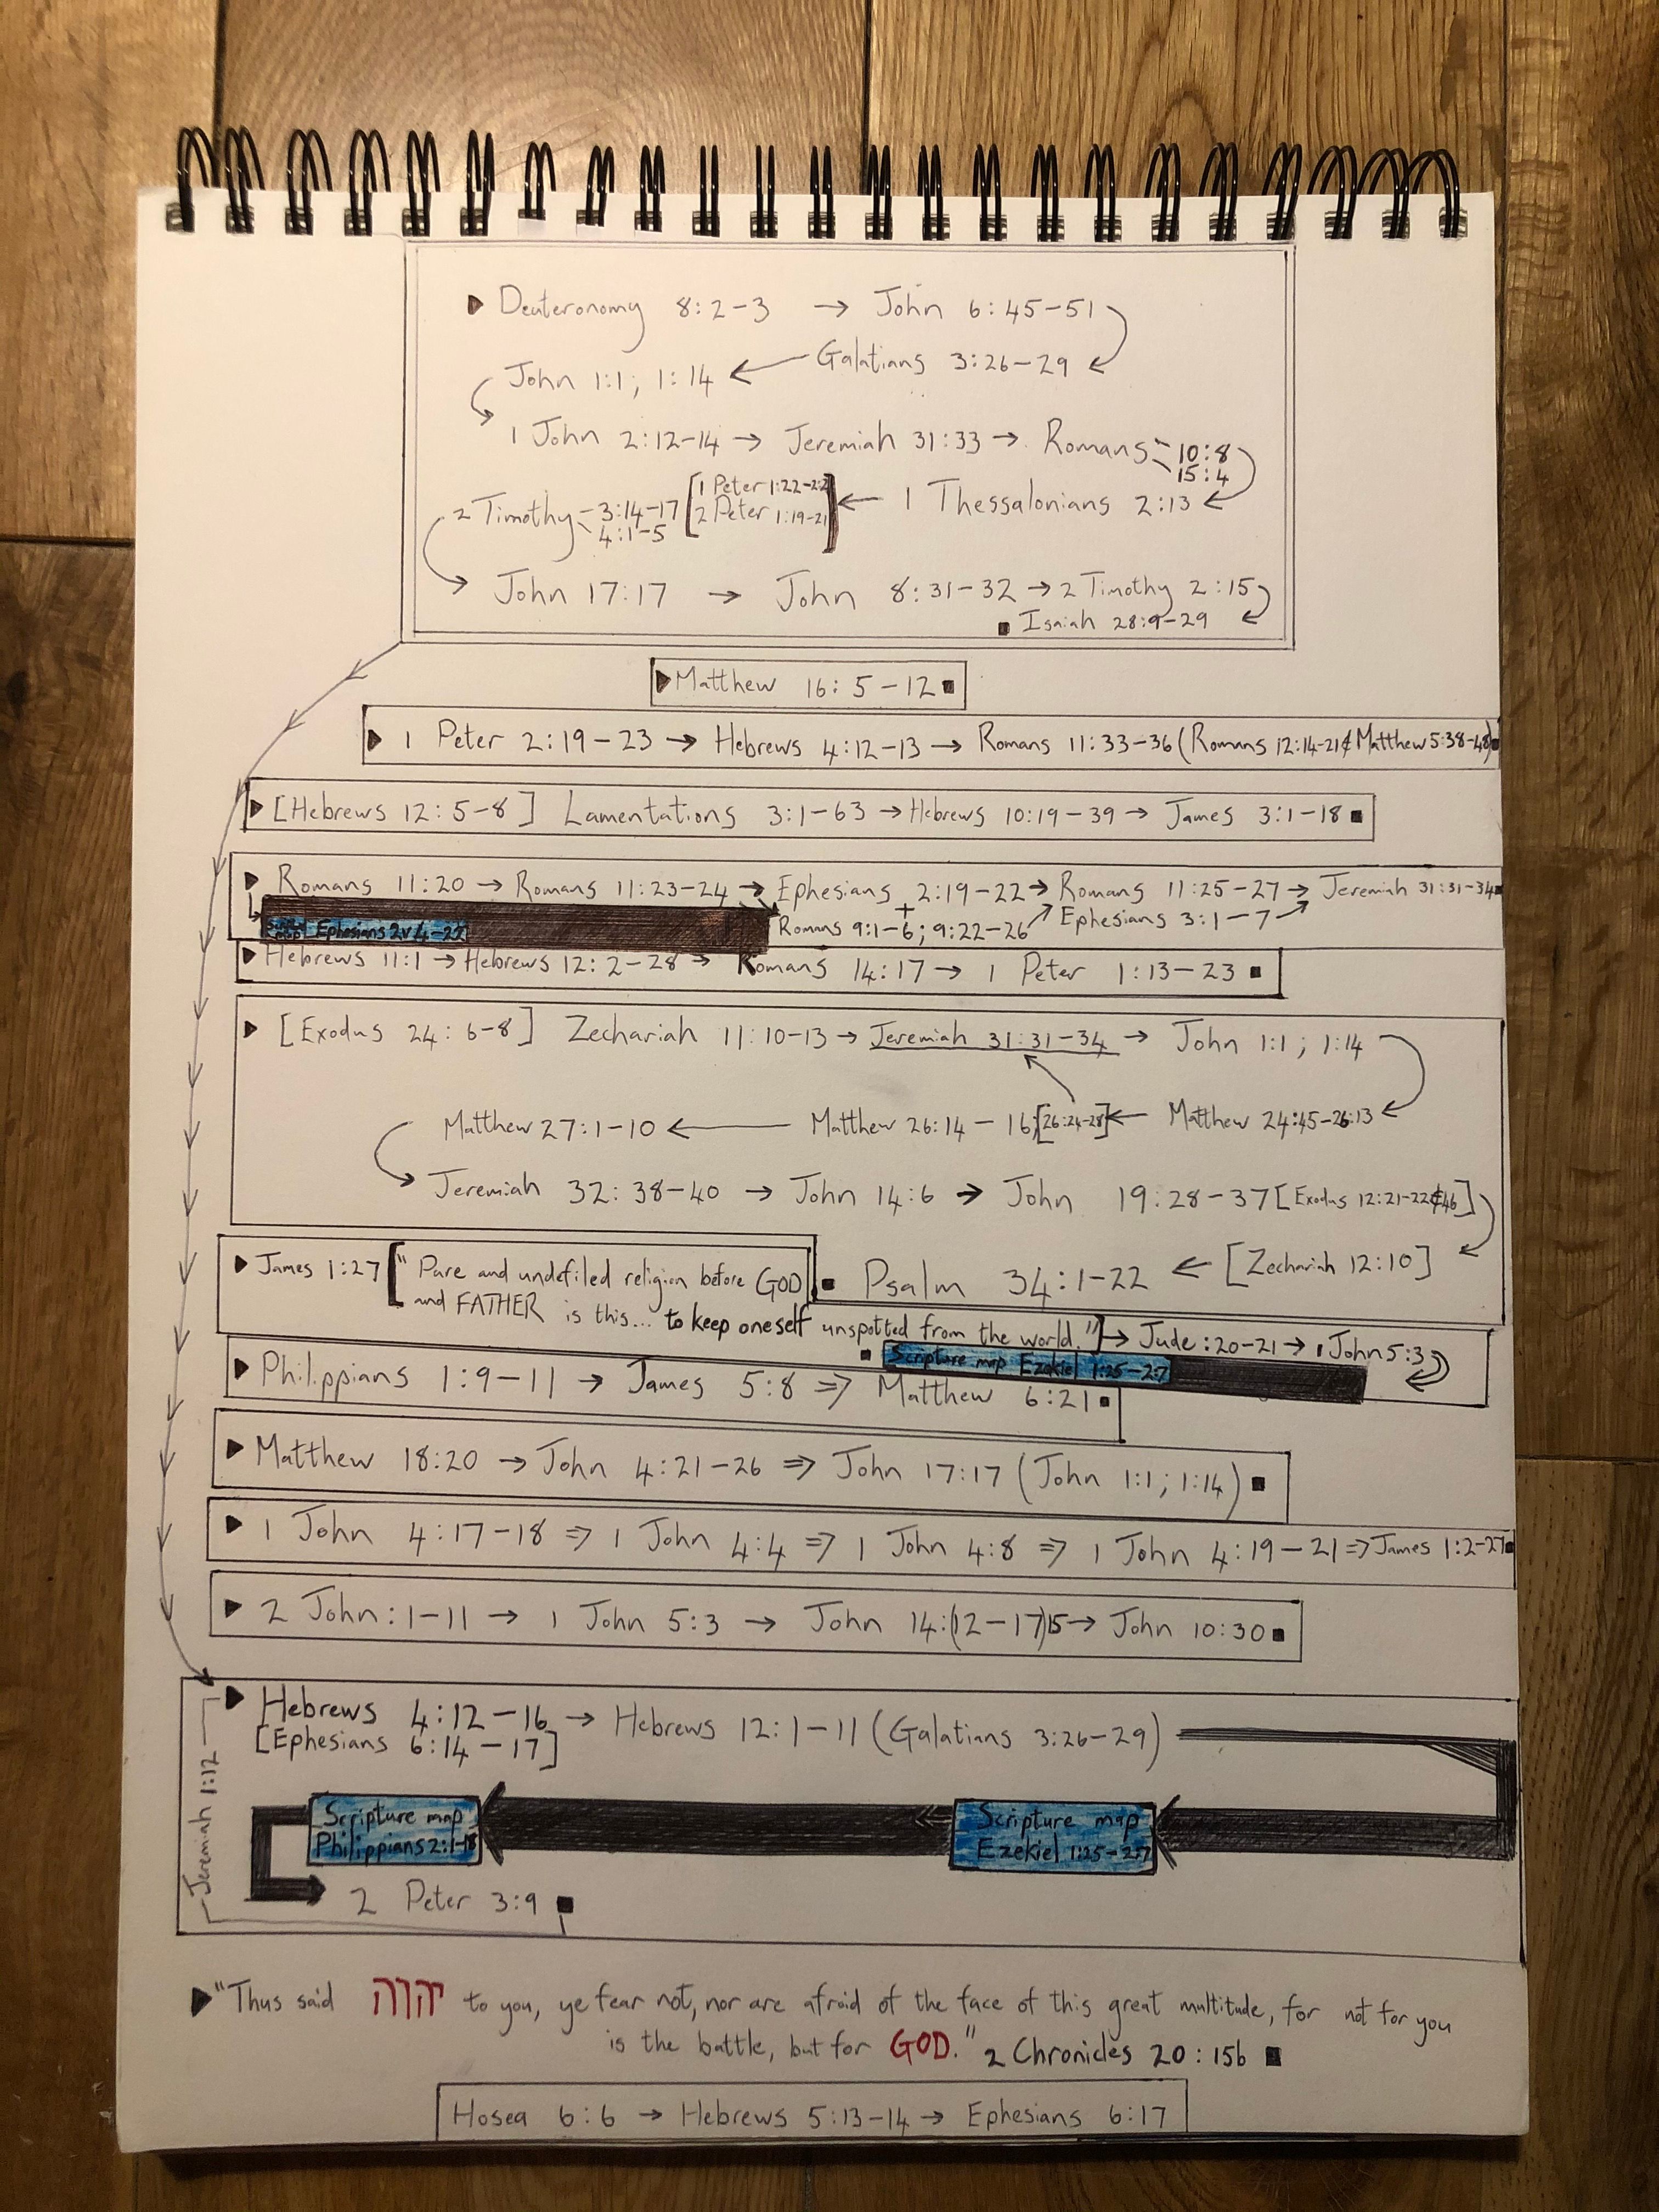 ▶ Deuteronomy 8:2-3 → John 6:45-51
Galatians 3:26-29
John 1:1; 1:14 ←
1 John 2:12-14 → Jeremiah 31:33 → Romans 10:8
15:4
[1 Peter 1:22-2:2
2 Timothy 3:14-17 2 Peter 1:19-21] ← 1 Thessalonians 2:13
4:1-5
John 17:17 → John 8:31-32 → 2 Timothy 2:15
■ Isaiah 28:9-29
▶ Matthew 16:5-12 ■
▶ 1 Peter 2:19-23 → Hebrews 4:12-13 → Romans 11:33-36 (Romans 12:14-21 & Matthew 5:38-48) ■
▶ [Hebrews 12:5-8] Lamentations 3:1-63 → Hebrews 10:19-39 → James 3:1-18 ■
▶ Romans 11:20 → Romans 11:23-24 → Ephesians 2:19-22 → Romans 11:25-27 → Jeremiah 31:31-34 ■
+
Scripture map Ephesians 2v4-22 Romans 9:1-6; 9:22-26 Ephesians 3:1-7
▶ Hebrews 11:1 → Hebrews 12:2-28 → Romans 14:17 → 1 Peter 1:13-23 ■
▶ [Exodus 24:6-8] Zechariah 11:10-13 → Jeremiah 31:31-34 → John 1:1; 1:14
Matthew 27:1-10 ← Matthew 26:14-16; [26:24-28] ← Matthew 24:45-26:13
Jeremiah 32:38-40 → John 14:6 → John 19:28-37 [Exodus 12:21-22 & 46]
■ Psalm 34:1-22 ← [Zechariah 12:10]
▶ James 1:27 ["Pure and undefiled religion before GOD
and FATHER is this... to keep oneself unspotted from the world."] → Jude:20-21 → 1 John 5:3
■ Scripture map Ezekiel 1:25-2:7
▶ Philippians 1:9-11 → James 5:8 ⇒ Matthew 6:21 ■
▶ Matthew 18:20 → John 4:21-26 ⇒ John 17:17 (John 1:1; 1:14) ■
▶ 1 John 4:17-18 ⇒ 1 John 4:4 ⇒ 1 John 4:8 ⇒ 1 John 4:19-21 ⇒ James 1:2-27 ■
▶ 2 John:1-11 → 1 John 5:3 → John 14:(12-17)15 → John 10:30 ■
▶ Hebrews 4:12-16 → Hebrews 12:1-11 (Galatians 3:26-29)
[Ephesians 6:14-17]
Jeremiah 1:12
Scripture map
Philippians 2:1-18
Scripture map
Ezekiel 1:25-2:7
2 Peter 3:9 ■
▶ "Thus said יהוה to you, ye fear not, nor are afraid of the face of this great multitude, for not for you
is the battle, but for GOD." 2 Chronicles 20:15b ■
Hosea 6:6 → Hebrews 5:13-14 → Ephesians 6:17